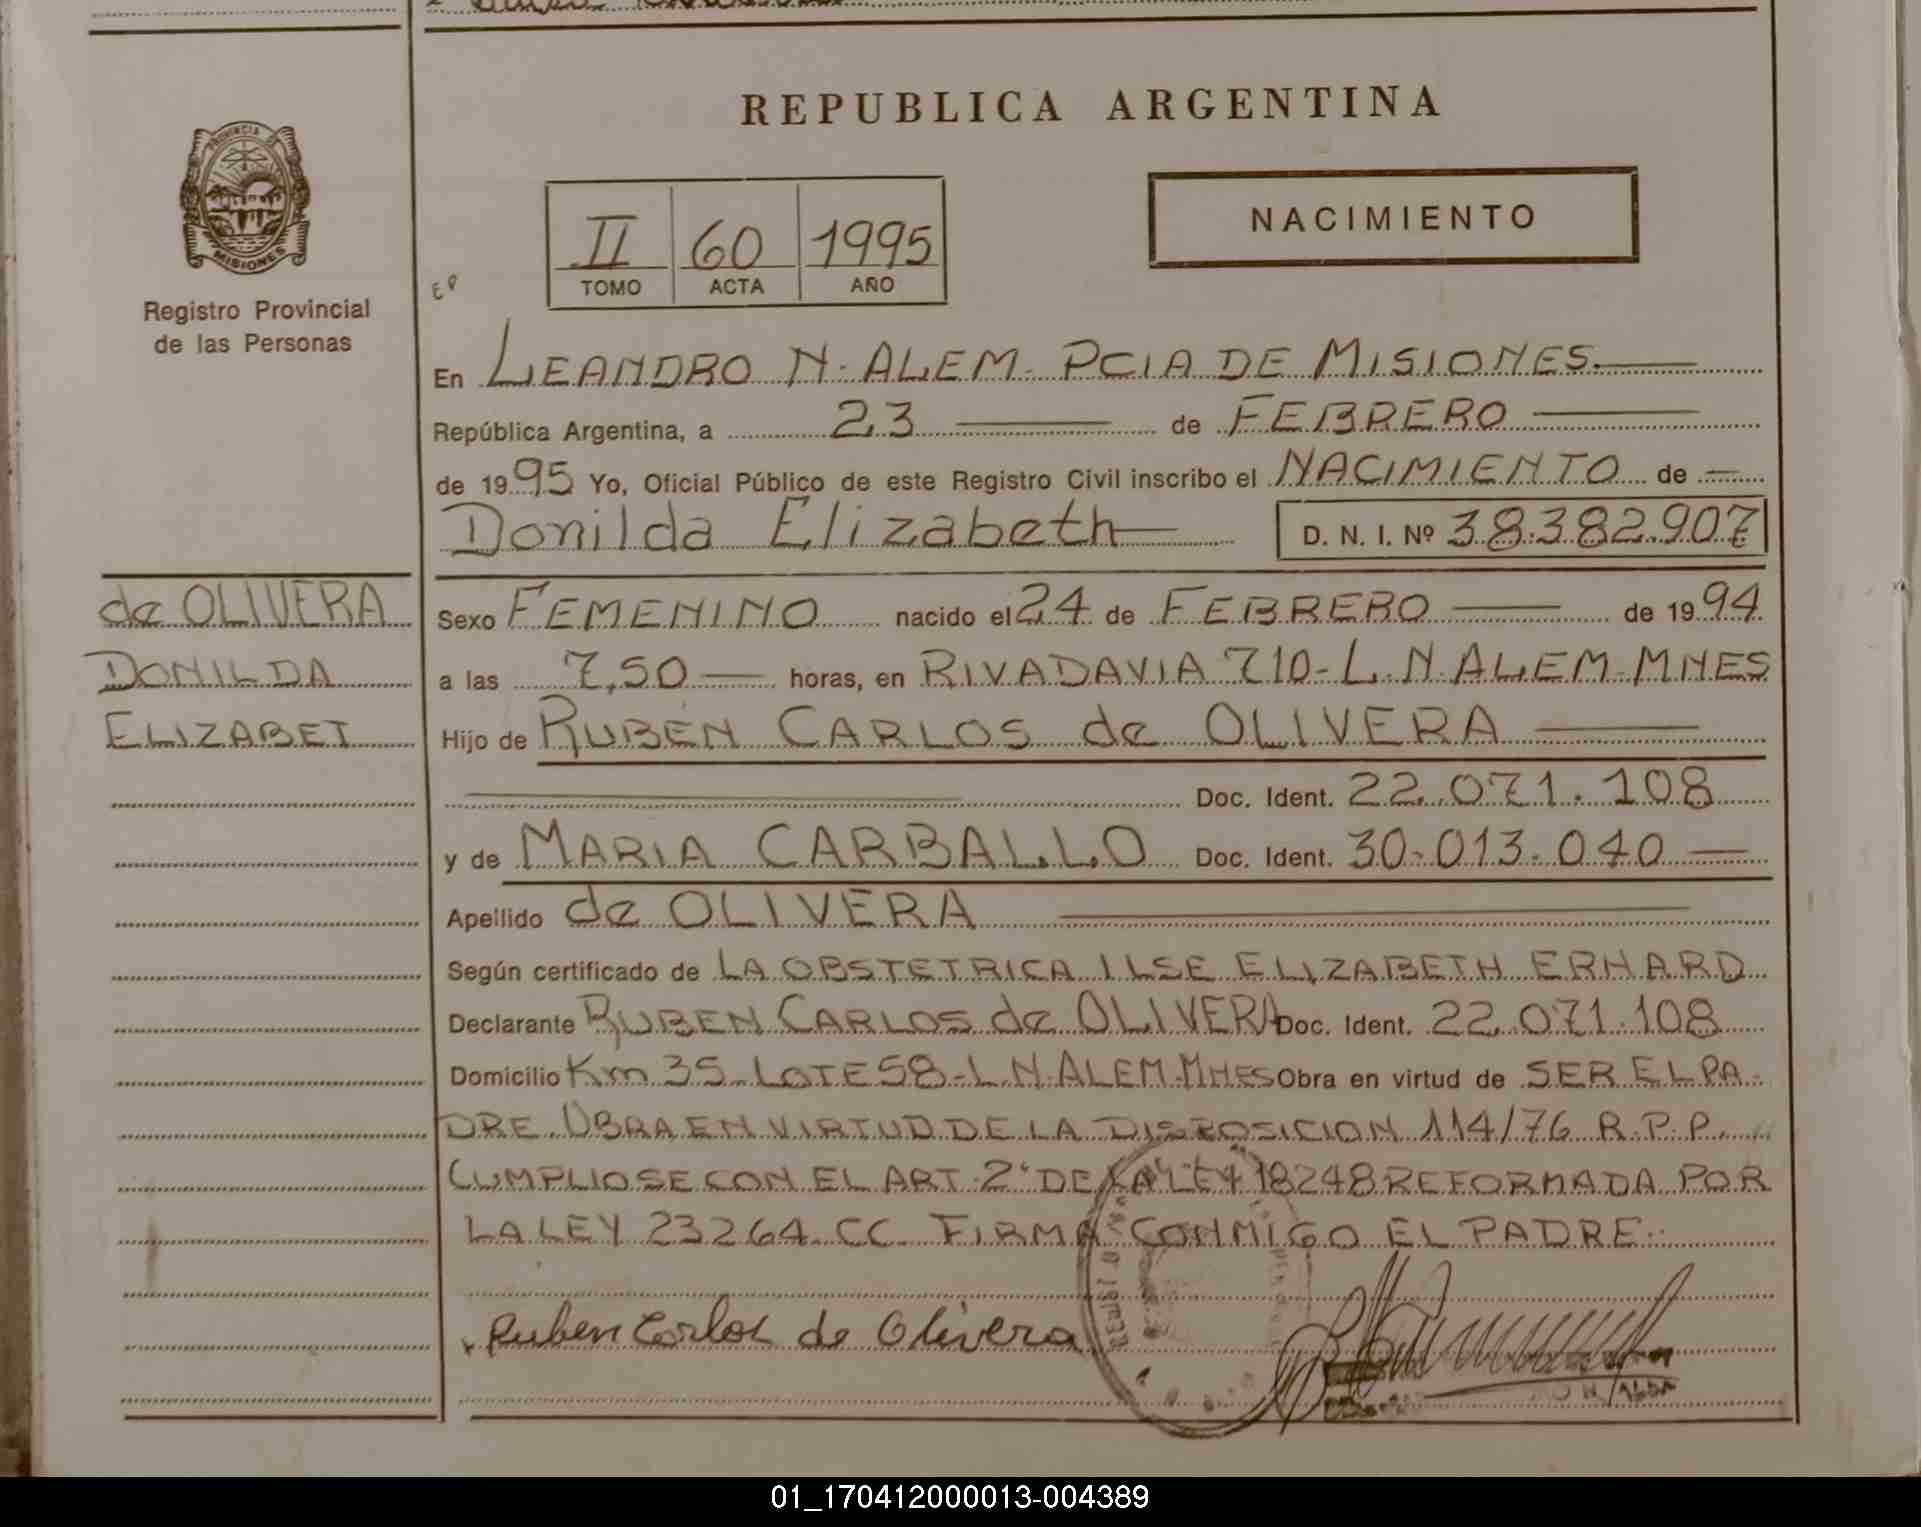 REPUBLICA ARGENTINA
PROVINCIA DE
MISIONES
Registro Provincial
de las Personas
II 60 1995
TOMO ACTA AÑO
NACIMIENTO
En LEANDRO N. ALEM. PCIA DE MISIONES.
República Argentina, a 23 de FEBRERO
de 1995 Yo, Oficial Público de este Registro Civil inscribo el NACIMIENTO de
Donilda Elizabeth D. N. I. Nº 38.382.907
de OLIVERA
DONILDA
ELIZABET
Sexo FEMENINO nacido el 24 de FEBRERO de 1994
a las 7,50 horas, en RIVADAVIA 710-L.N.ALEM-MNES
Hijo de RUBEN CARLOS de OLIVERA
Doc. Ident. 22.071.108
y de MARIA CARBALLO Doc. Ident. 30.013.040
Apellido de OLIVERA
Según certificado de LA OBSTETRICA ILSE ELIZABETH ERHARD
Declarante RUBEN CARLOS de OLIVERA Doc. Ident. 22.071.108
Domicilio Km 35-LOTE 58-L.N.ALEM-MNES Obra en virtud de SER EL PA-
DRE. OBRA EN VIRTUD DE LA DISPOSICION 114/76 R.P.P.
CUMPLIOSE CON EL ART. 2° DE LA LEY 18248 REFORMADA POR
LA LEY 23264 CC. FIRMA CONMIGO EL PADRE.
Ruben Carlos de Olivera
01_170412000013-004389